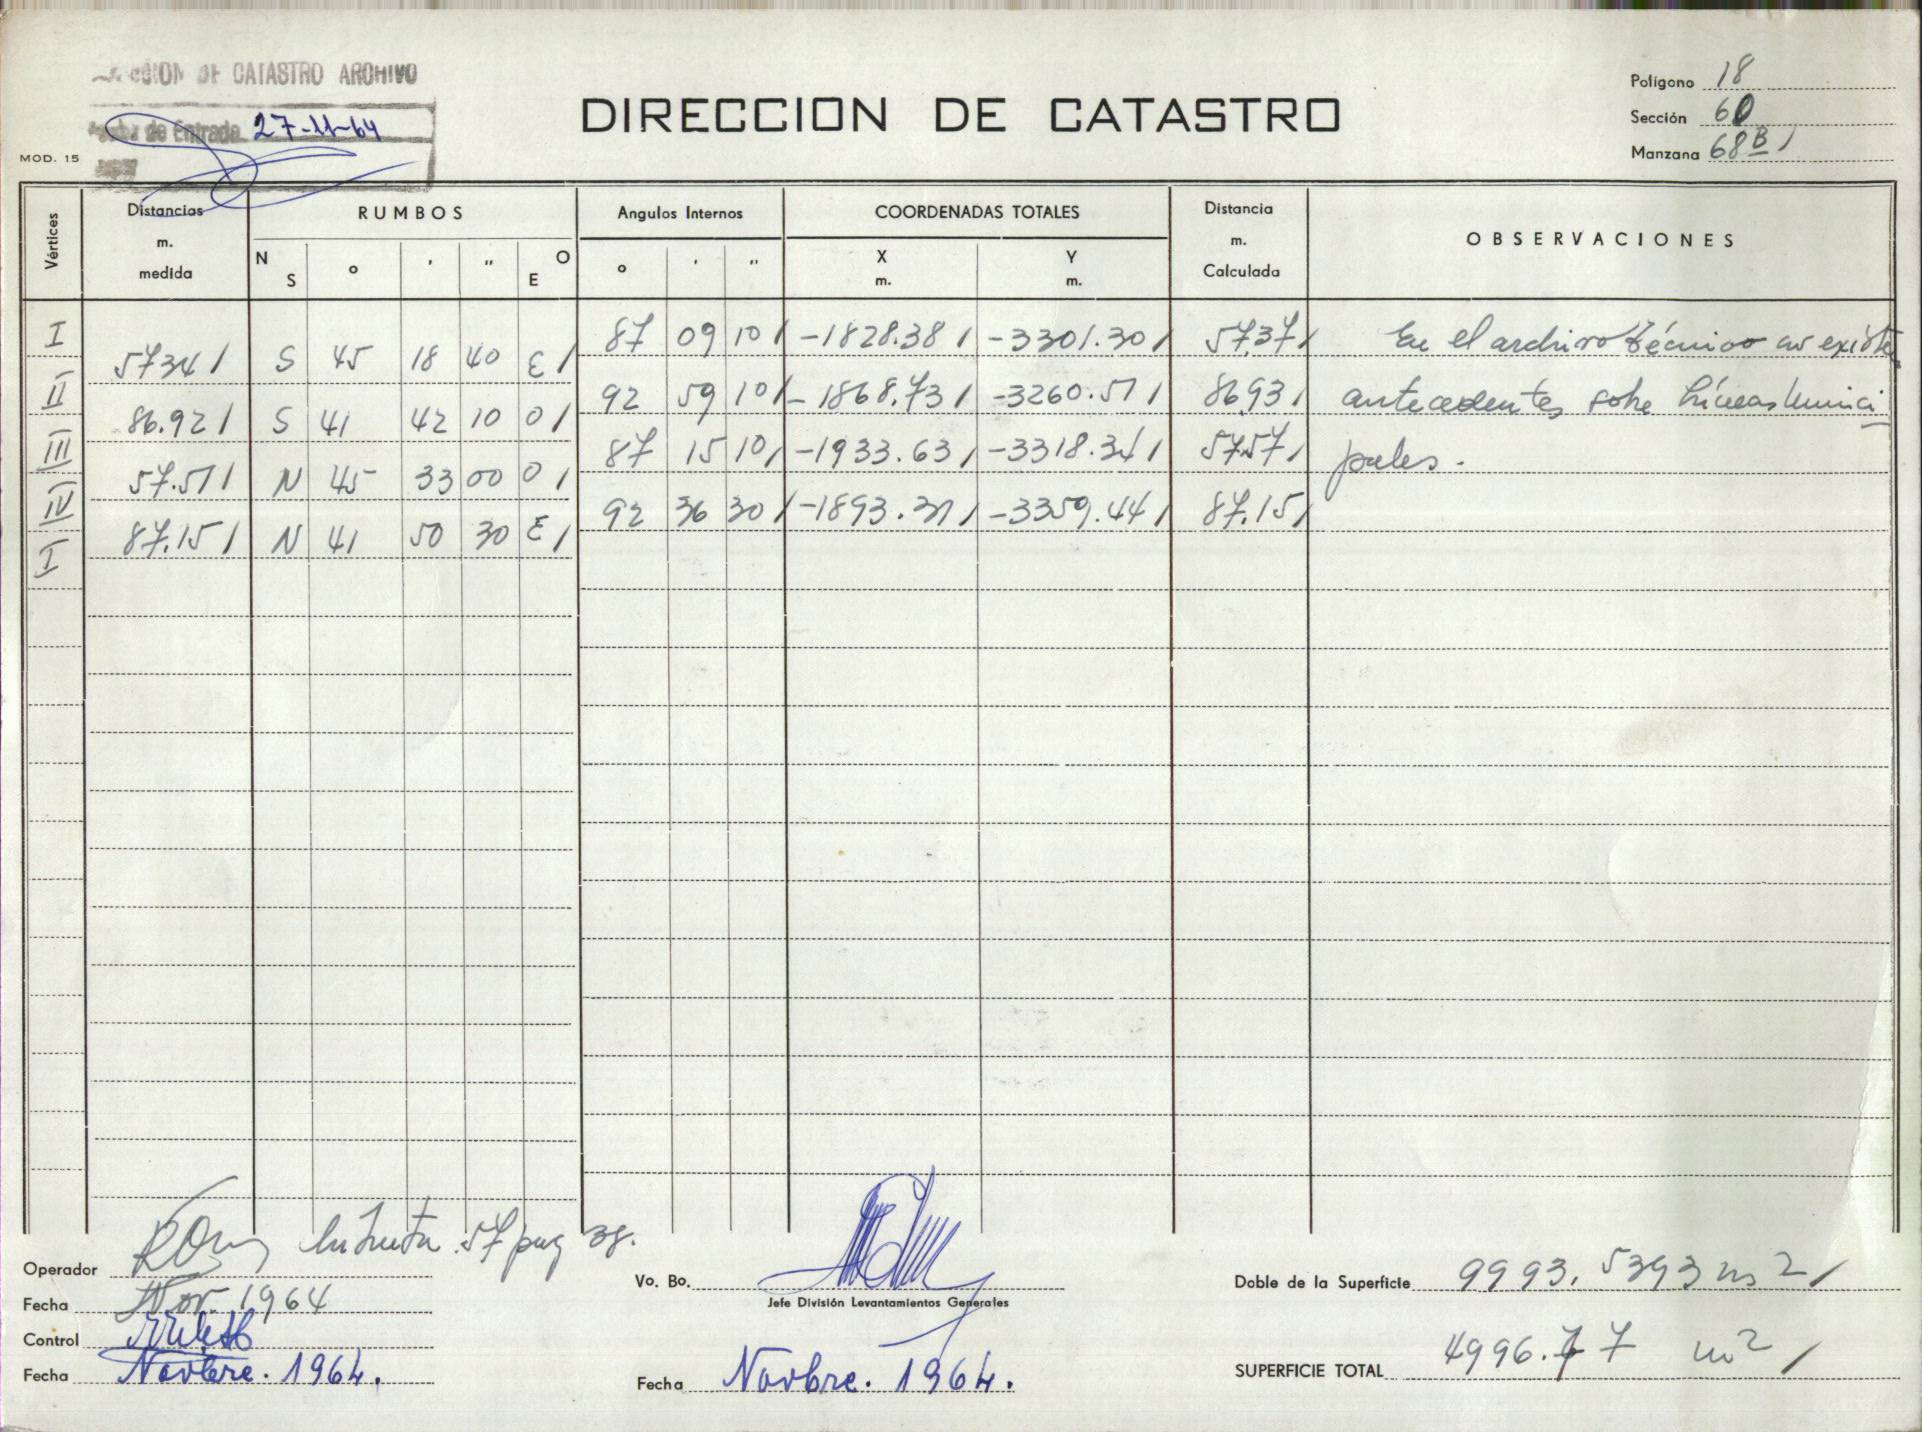 DE CATASTRO ARCHIVO
de Entrada 27-11-64
MOD. 15
DIRECCION DE CATASTRO
Polígono 18
Sección 60
Manzana 68B /
Vértices
Distancias m. medida
RUMBOS
N S ° ' " O E
Angulos Internos
° ' "
COORDENADAS TOTALES
X m. Y m.
Distancia m. Calculada
OBSERVACIONES
I 87 09 10 / -1828.38 / -3301.30 / 57.37 / En el archivo técnico no existen
57.34 / S 45 18 40 E /
II 92 59 10 / -1868.73 / -3260.51 / 86.93 / antecedentes sobre Líneas Munici
86.92 / S 41 42 10 O /
III 87 15 10 / -1933.63 / -3318.34 / 57.57 / pales.
57.51 / N 45 33 00 O /
IV 92 36 30 / -1893.31 / -3359.44 / 87.15 /
87.15 / N 41 50 30 E /
I
Operador 57 pag 38.
Fecha Nov. 1964
Control
Fecha Novbre. 1964.
Vo. Bo.
Jefe División Levantamientos Generales
Fecha Novbre. 1964.
Doble de la Superficie 9993.5393 m2 /
SUPERFICIE TOTAL 4996.77 m2 /